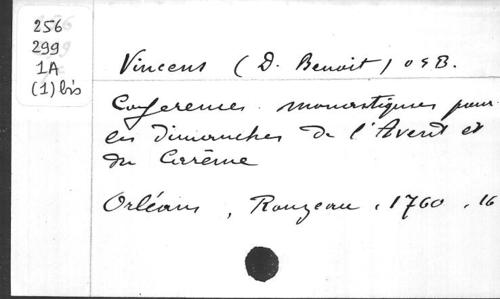 256
299
1A
(1) bis
Vincens (D. Benoit) OSB.
Conferences monastiques pour
les Dimanches de l'Avent et
du Carême
Orléans, Rouzeau, 1760, 16